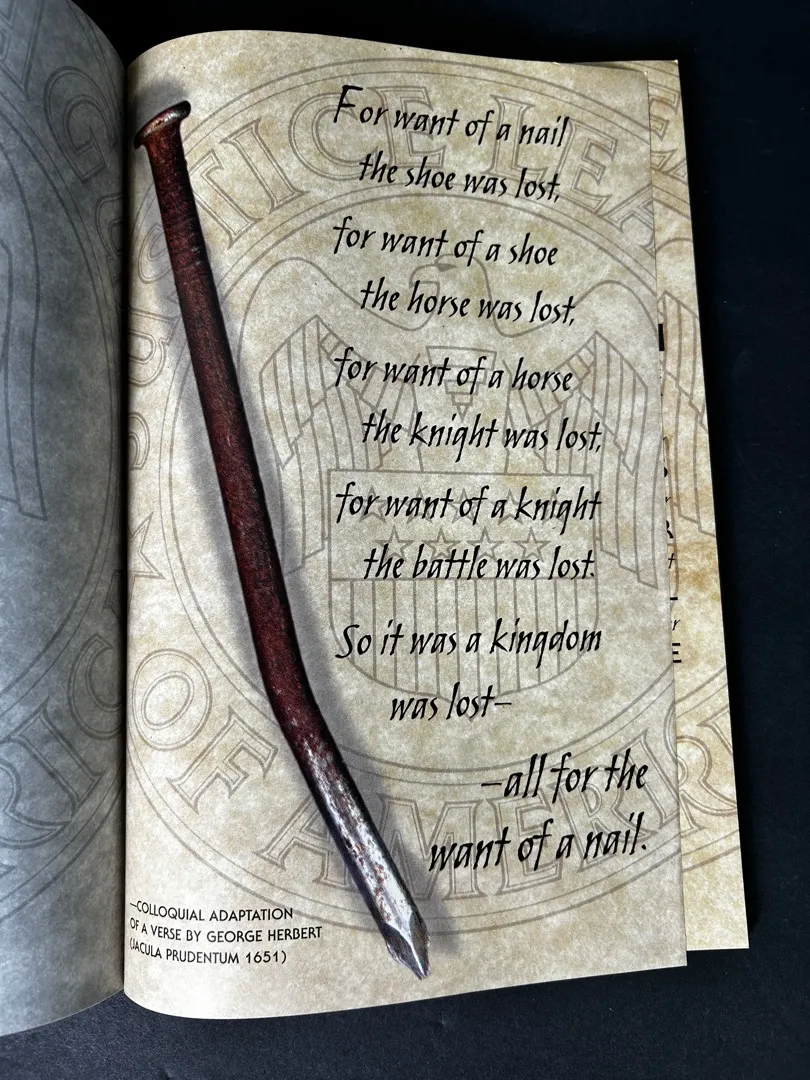 For want of a nail
the shoe was lost,
for want of a shoe
the horse was lost,
for want of a horse
the knight was lost,
for want of a knight
the battle was lost.
So it was a kingdom
was lost—
—all for the
want of a nail.
—COLLOQUIAL ADAPTATION
OF A VERSE BY GEORGE HERBERT
(JACULA PRUDENTUM 1651)
JUSTICE LEAGUE
OF AMERICA